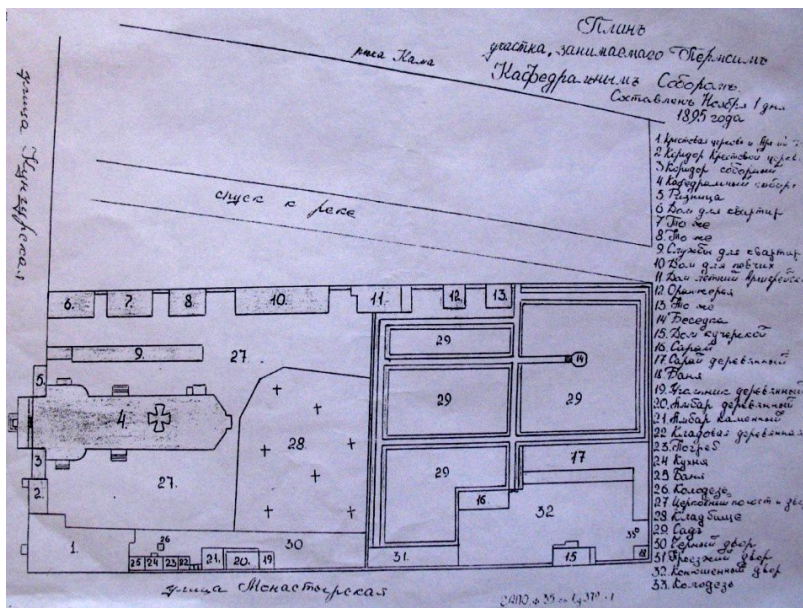 Планъ
участка, занимаемаго Пермскимъ
Кафедральнымъ Соборомъ.
Составленъ Ноября 1 дня
1895 года
река Кама
улица Кунгурская
спуск к реке
1 Крестовая церковь и
2 Коридор Крестовой церкви
3 Коридор соборный
4 Кафедральный собор
5 Ризница
6 Дом для квартир
7 То же
8. То же
9. Службы для квартир
10 Дом для певчих
11 Дом летний Архиерейск
12 Оранжерея
13 То же
14 Беседка
15. Дом кучерской
16. Сарай
17 Сарай деревянный
18 Баня
19. деревянный
20. Амбар деревянный
21. Амбар каменный
22 Кладовая деревянная
23. Погреб
24 Кухня
25 Баня
26. Колодезь
27 Церковный погост и
28. Кладбище
29. Садъ
30 Черный двор
31 Проезжий двор
32. Конюшенный двор
33. Колодезь
6. 7. 8 10. 11. 12. 13.
9. 27 29 14
5.
4. 29 29
28.
3 27. 29 17
2. 16. 32
26 33
1. 30 31. 15 18
25 24 23 22 21. 20. 19
улица Монастырская